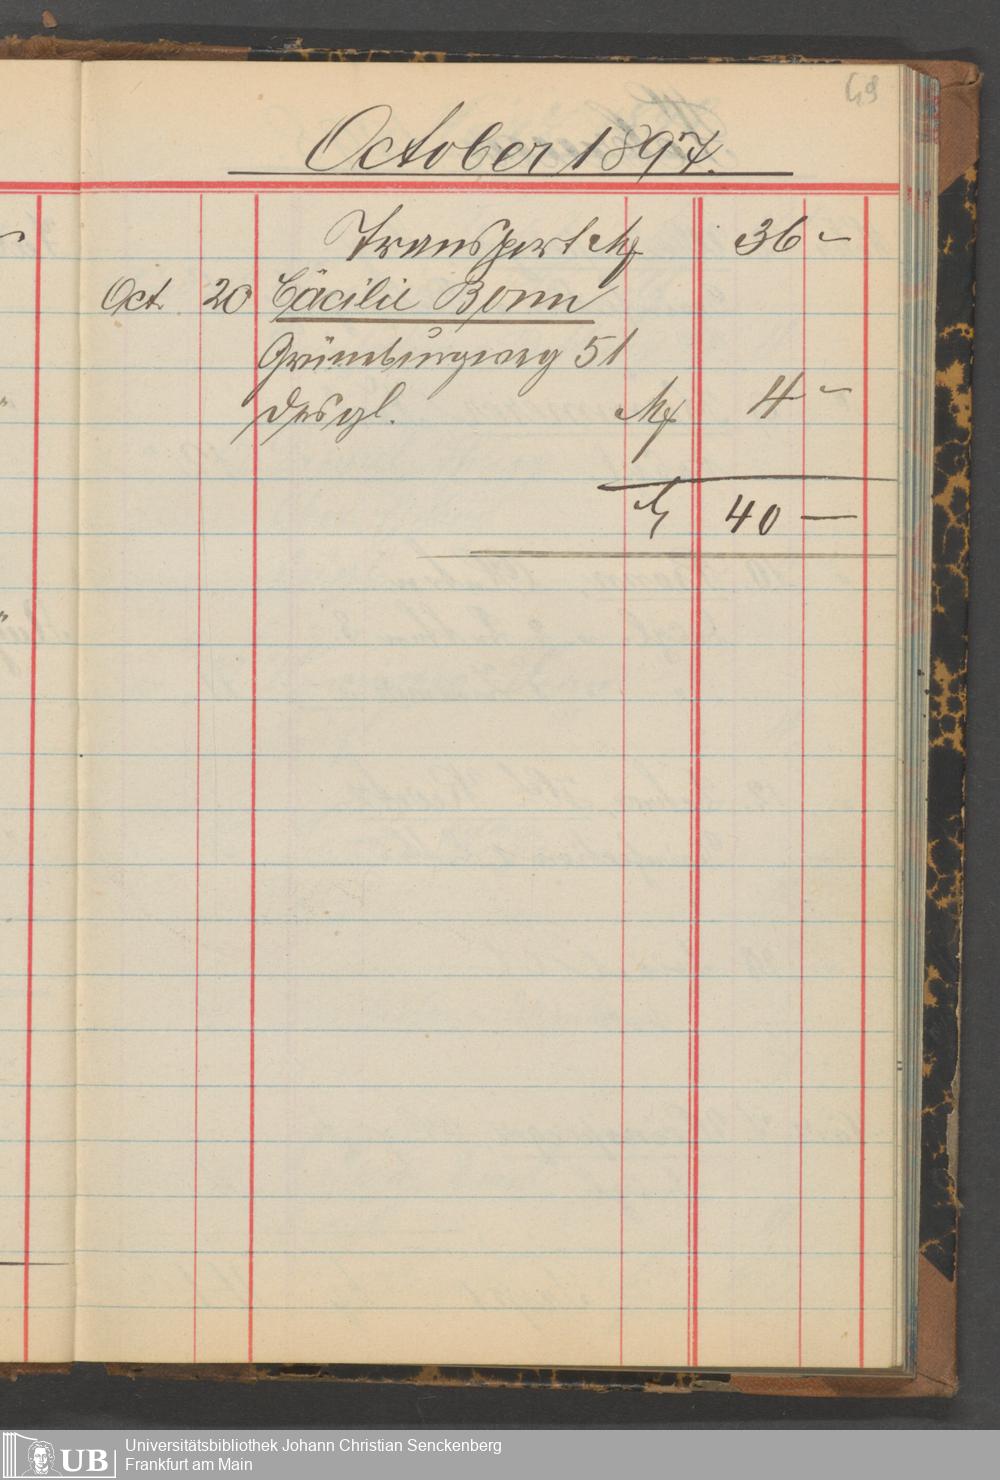 49
October 1897.
Transport M 36 –
Oct. 20 Cäcilie Bonn
Grüneburgweg 51
desgl. M 4 –
M 40 –
UB Universitätsbibliothek Johann Christian Senckenberg
Frankfurt am Main